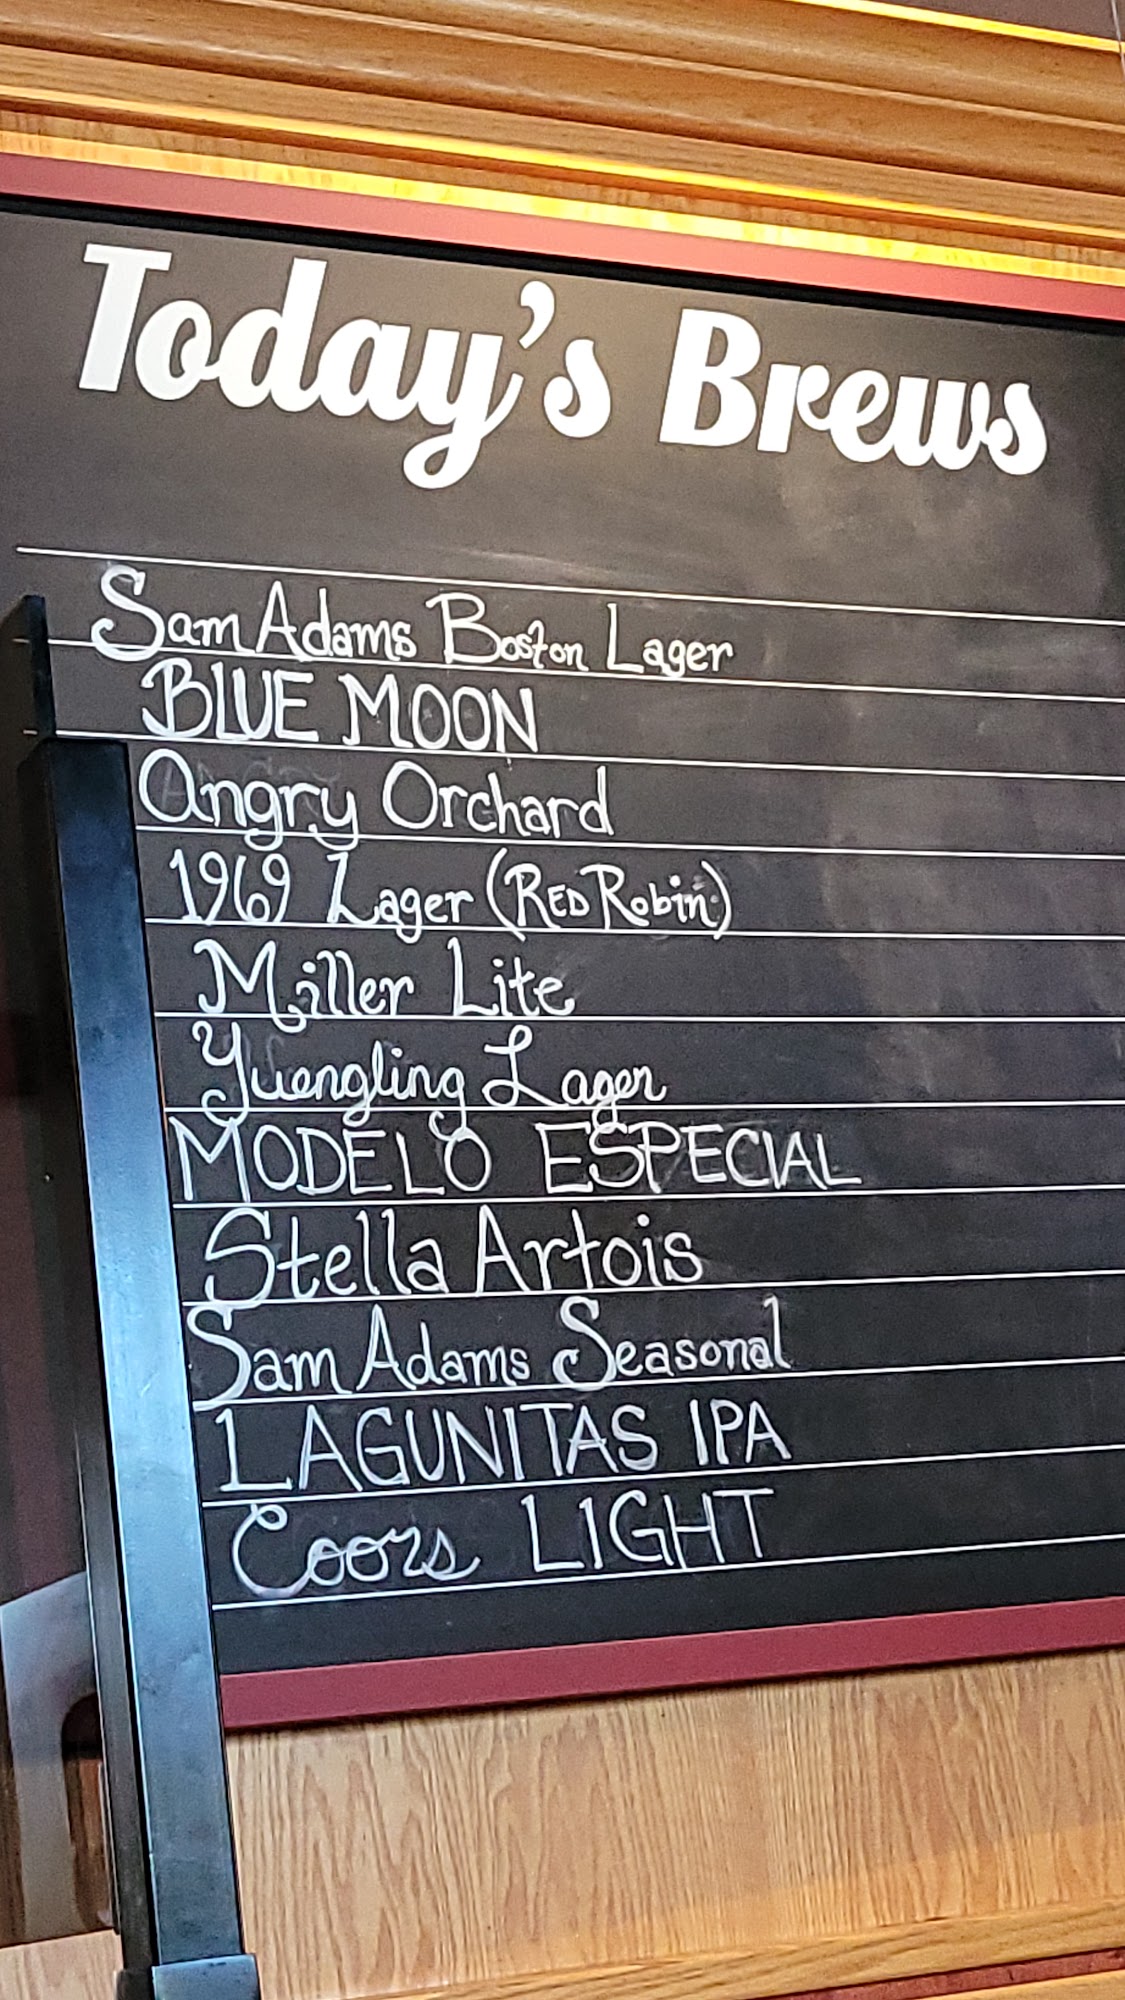 Today's Brews
Sam Adams Boston Lager
BLUE MOON
Angry Orchard
1969 Lager (RED Robin)
Miller Lite
Yuengling Lager
MODELO ESPECIAL
Stella Artois
Sam Adams Seasonal
LAGUNITAS IPA
Coors LIGHT